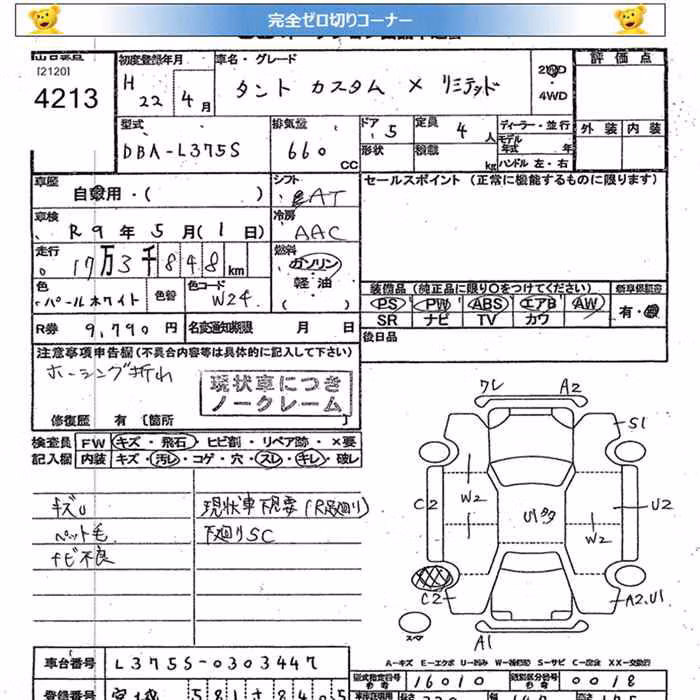 完全ゼロ切りコーナー
[2120]
4213
初度登録年月
H 22 4月
車名・グレード
タント カスタム X リミテッド
2WD
・4WD
評価点
外装 内装
型式
DBA-L375S
排気量
660 CC
ドア 5
形状
定員 4人
積載 kg
ディーラー・並行
モデル年式 年
ハンドル 左・右
車歴
自家用・( )
シフト
AT
セールスポイント (正常に機能するものに限ります)
車検
R9年5月(1日)
冷房
AAC
走行
17万3千848km
燃料
ガソリン・軽油・( )
色
パールホワイト
色替
色コード
W24
装備品 (純正品に限り○をつけてください)
PS・PW・ABS・エアB・AW
SR ナビ TV カワ
有・無
R券
9,790円
名変通知期限 月 日
後日品
注意事項申告欄 (不具合内容等は具体的に記入して下さい)
ホーシング折れ
現状車につき
ノークレーム
修復歴 有 [箇所 ]
検査員 FW キズ・飛石・ヒビ割・リペア跡・×要
記入欄 内装 キズ・汚レ・コゲ・穴・スレ・キレ・破レ
キズU
ペット毛
ナビ不良
下廻りSC
ワレ A2
S1
C2
W2
U2
W2
C2
A2,U1
スマ
A1
A-キズ E-エクボ U-凹み S-サビ C-腐食 XX-交換済
車台番号
L375S-0303447
型式指定番号
16010
類別区分番号
0018
登録番号